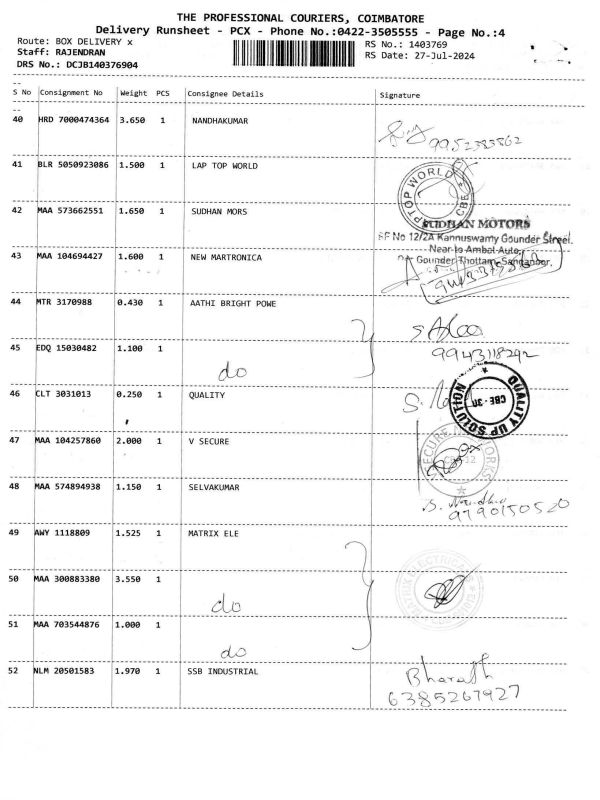 THE PROFESSIONAL COURIERS, COIMBATORE
Delivery Runsheet - PCX - Phone No.:0422-3505555 - Page No.:4
Route: BOX DELIVERY x
RS No.: 1403769
Staff: RAJENDRAN
RS Date: 27-Jul-2024
DRS No.: DCJB140376904
S No Consignment No Weight PCS Consignee Details Signature
40 HRD 7000474364 3.650 1 NANDHAKUMAR
9952383862
41 BLR 5050923086 1.500 1 LAP TOP WORLD
LAPTOP WORLD
CBE
42 MAA 573662551 1.650 1 SUDHAN MORS
SUDHAN MOTORS
SF No 12/2A Kannuswamy Gounder Street.
Near to Ambal Auto,
Gounder Thottam,
43 MAA 104694427 1.600 1 NEW MARTRONICA
44 MTR 3170988 0.430 1 AATHI BRIGHT POWE
45 EDQ 15030482 1.100 1
do
9943118292
46 CLT 3031013 0.250 1 QUALITY
QUALITY UP SOLUTION
CBE - 30
47 MAA 104257860 2.000 1 V SECURE
48 MAA 574894938 1.150 1 SELVAKUMAR
9790150520
49 AWY 1118809 1.525 1 MATRIX ELE
50 MAA 300883380 3.550 1
do
MATRIX ELECTRICALS
51 MAA 703544876 1.000 1
do
52 NLM 20501583 1.970 1 SSB INDUSTRIAL
Bharath
6385267927